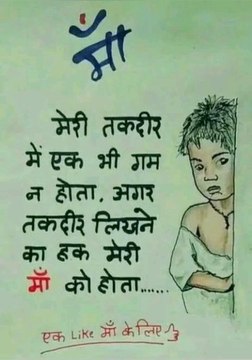 माँ
मेरी तकदीर
में एक भी गम
न होता, अगर
तकदीर लिखने
का हक मेरी
माँ को होता......
एक Like माँ के लिए